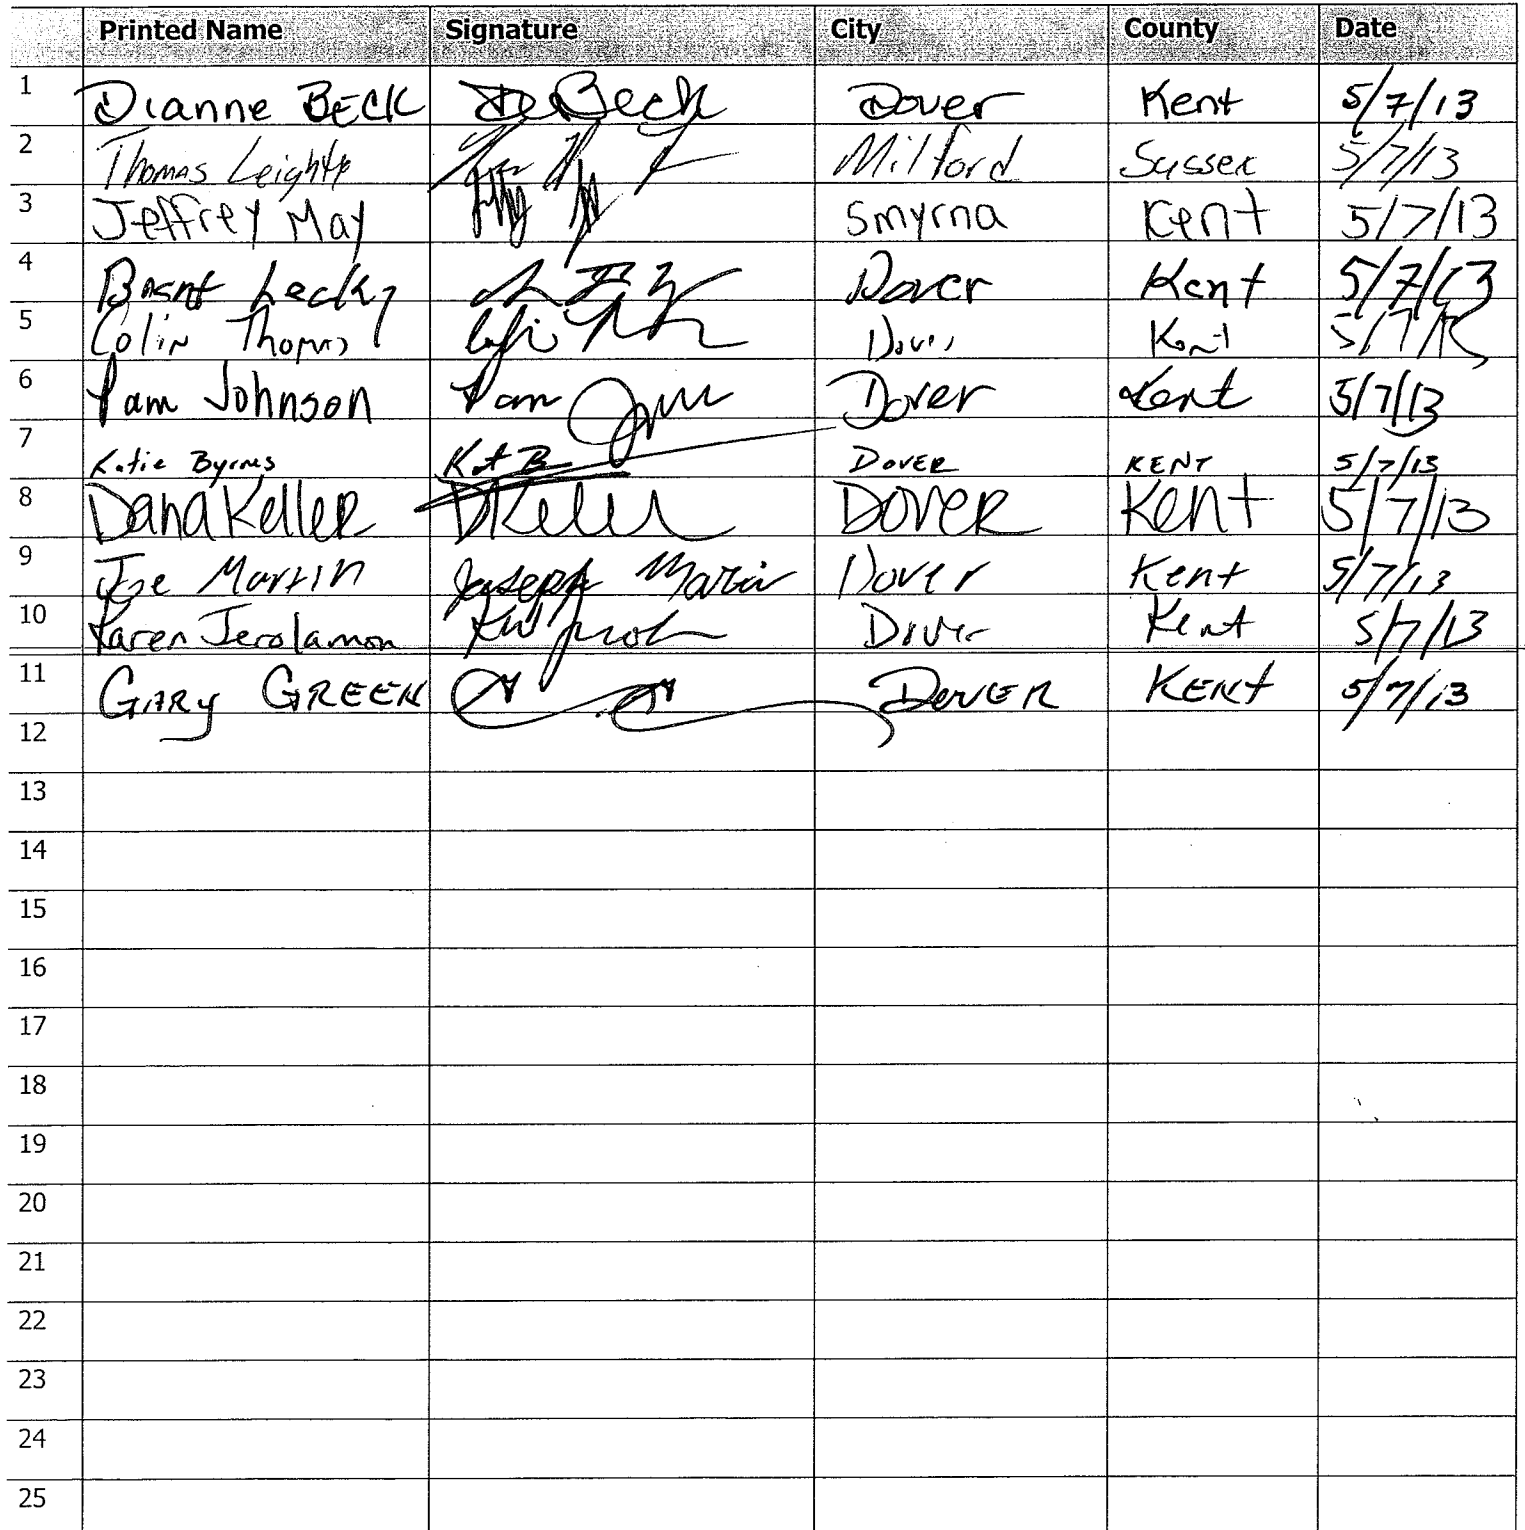 Printed Name Signature City County Date
1 Dianne BECK Beck Dover Kent 5/7/13
2 Thomas Milford Sussex 5/7/13
3 Jeffrey May Smyrna Kent 5/7/13
4 Dover Kent 5/7/13
5 Colin Thomas Dover Kent 5/7/13
6 Pam Johnson Pam Dover Kent 5/7/13
7 Katie DOVER KENT 5/7/13
8 Dana Keller DKeller DOVER Kent 5/7/13
9 Joe Martin Joseph Martin Dover Kent 5/7/13
10 Karen Jerolamon Dover Kent 5/7/13
11 GARY GREEN DOVER KENT 5/7/13
12
13
14
15
16
17
18
19
20
21
22
23
24
25